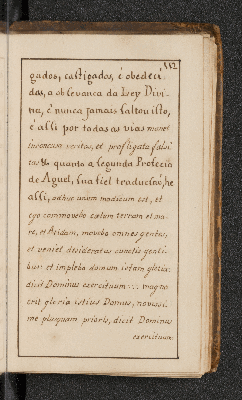 112
gados, castigados, é obedeci-
das, a obſevanca da Ley Divi-
na, é nunca jamais faltou iſto,
é aſſi por todas as vias monet
inconcuza veritas, et profligata falsi
tas & quanto a ſegunda Profecia
de Agueo, ſua fiel traducſaõ, he
aſſi, adhuc unum modicum est, et
ego commovebo cælum terram et ma-
re, et Aridam, movebo omnes gentes,
et veniet desideratus cunctis genti-
bus: et implebo domum istam gloria:
dicit Dominus exercituum ... magna
erit gloria istius Domus, novissi-
me plusquam prioris, dicit Dominus
exercituum